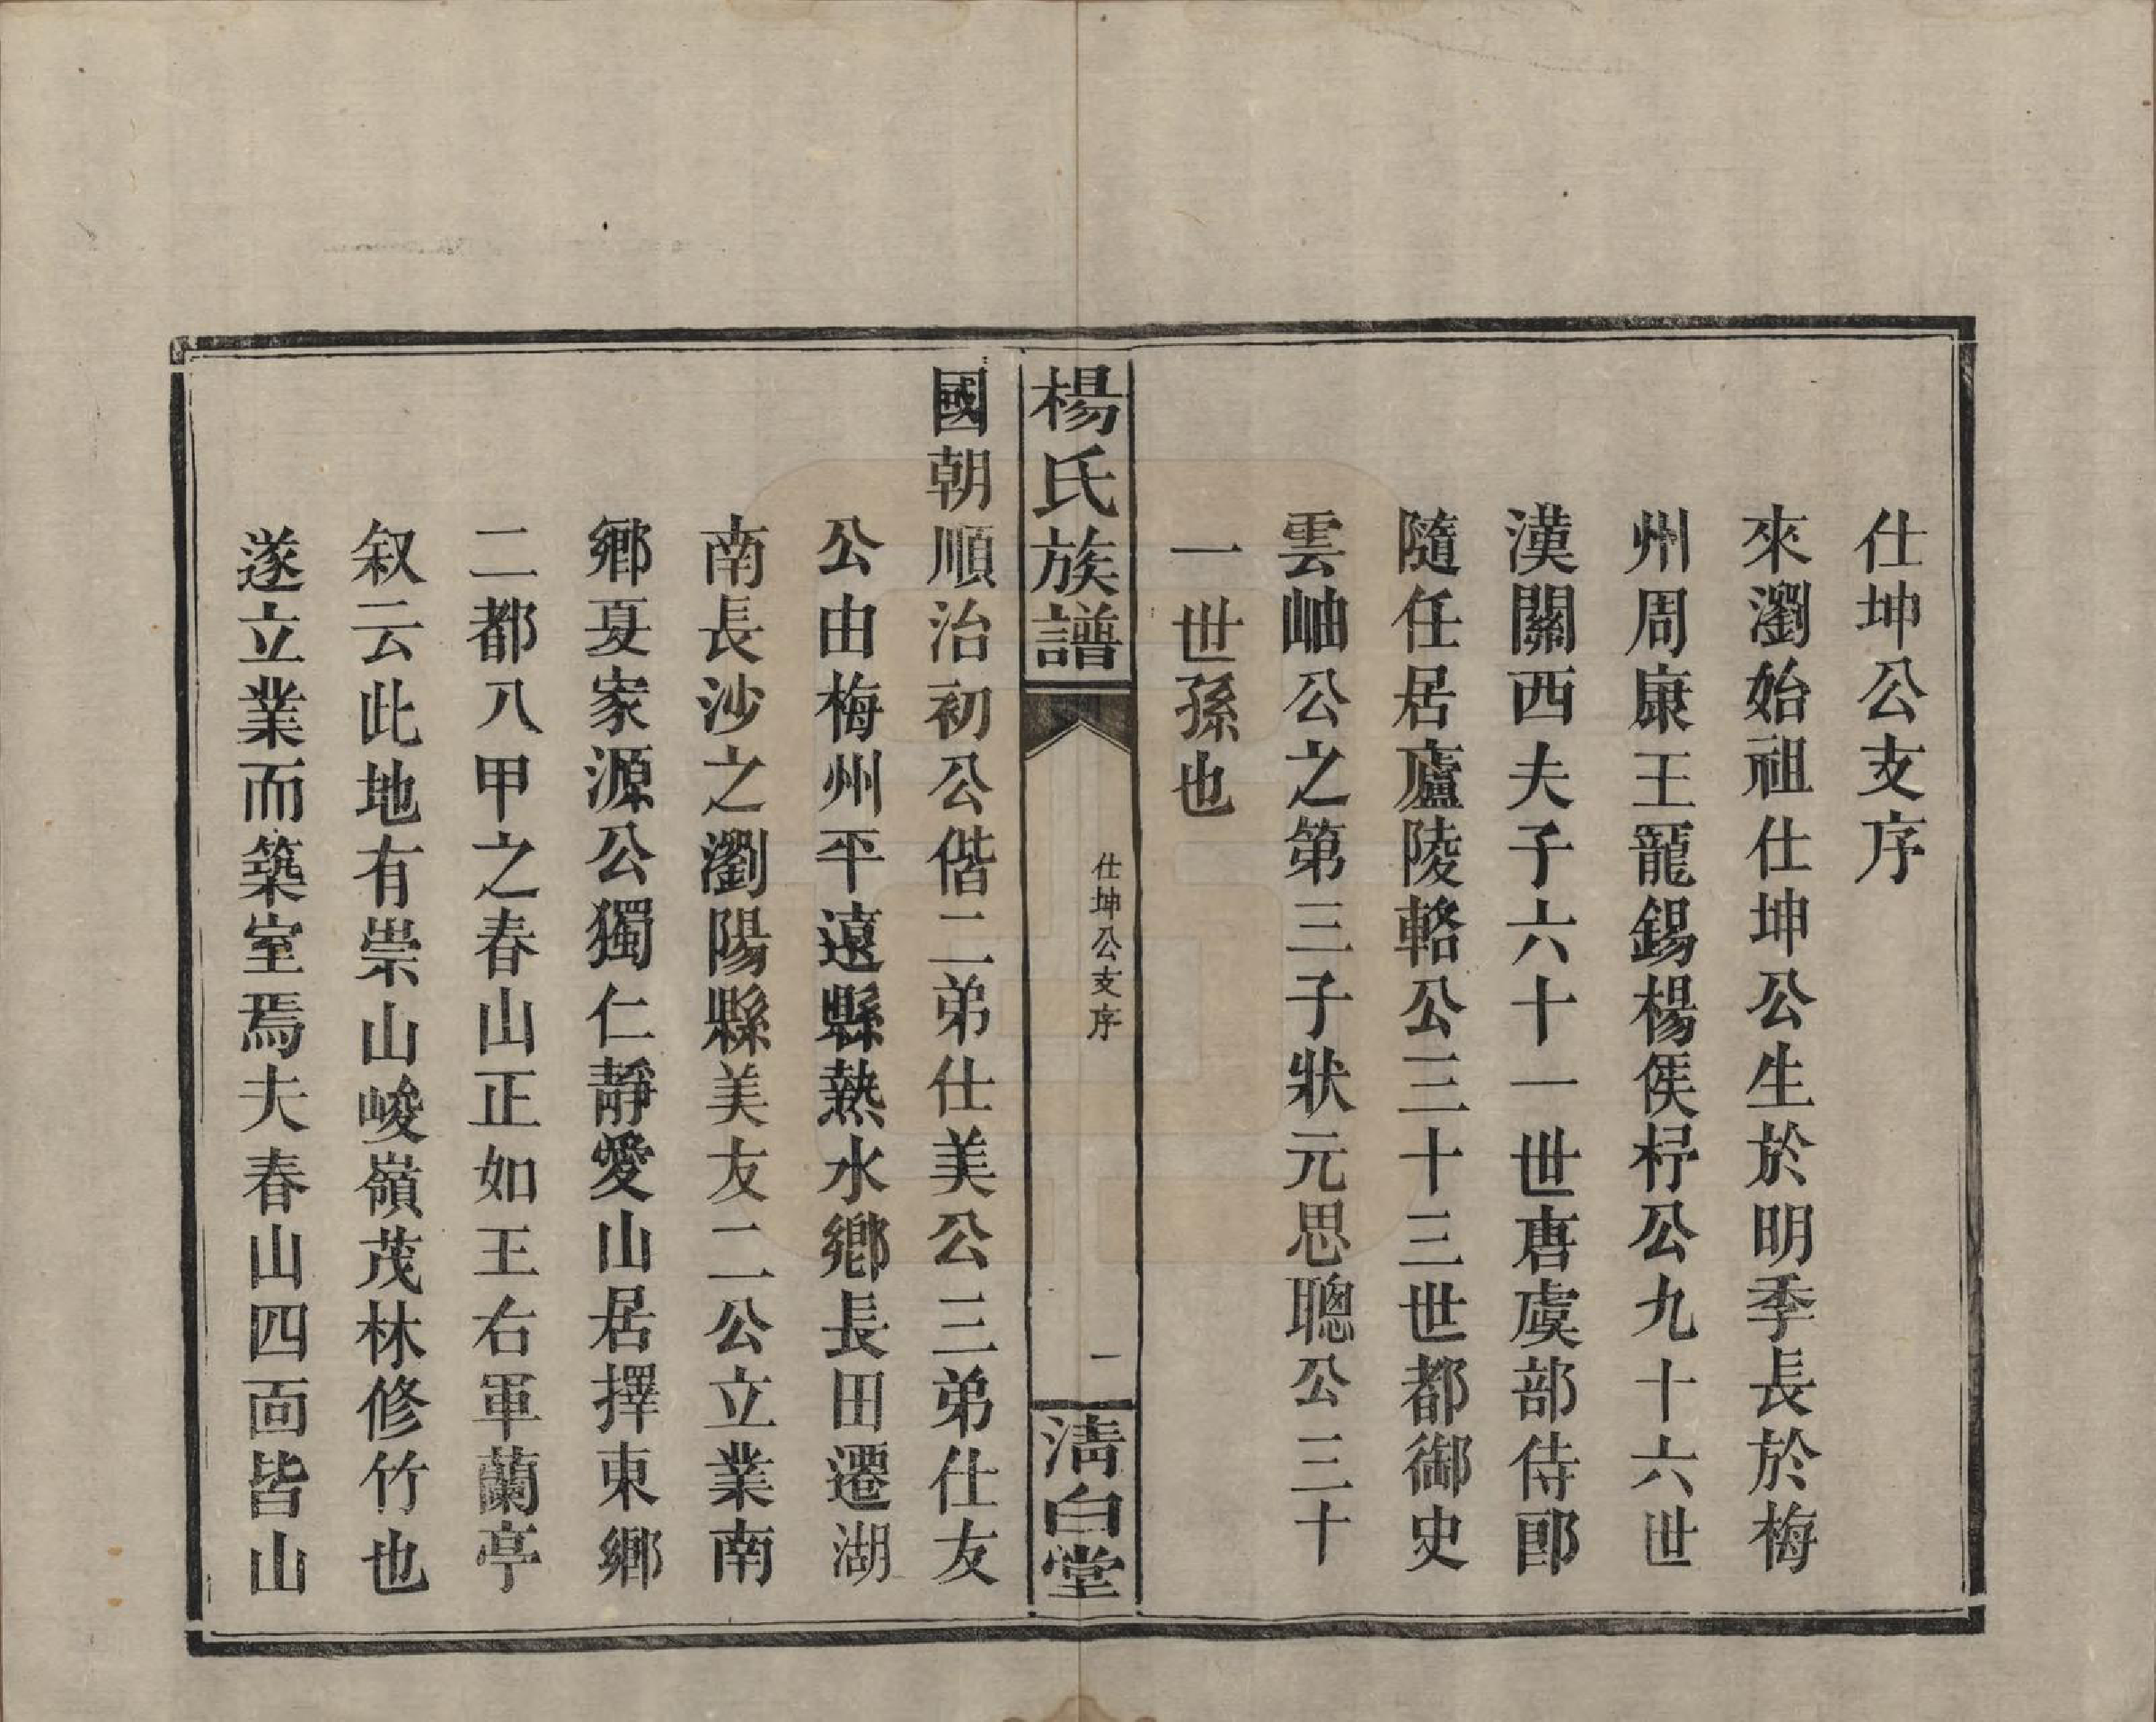 仕坤公支序
來瀏始祖仕坤公生於明季長於梅
州周康王寵錫楊侯杼公九十六世
漢關西夫子六十一世唐虞部侍郎
隨任居廬陵輅公三十三世都御史
雲岫公之第三子狀元思聰公三十
一世孫也
楊氏族譜
仕坤公支序
一
淸白堂
國朝順治初公偕二弟仕美公三弟仕友
公由梅州平遠縣熱水鄉長田遷湖
南長沙之瀏陽縣美友二公立業南
鄉夏家源公獨仁靜愛山居擇東鄉
二都八甲之春山正如王右軍蘭亭
叙云此地有崇山峻嶺茂林修竹也
遂立業而築室焉夫春山四面皆山